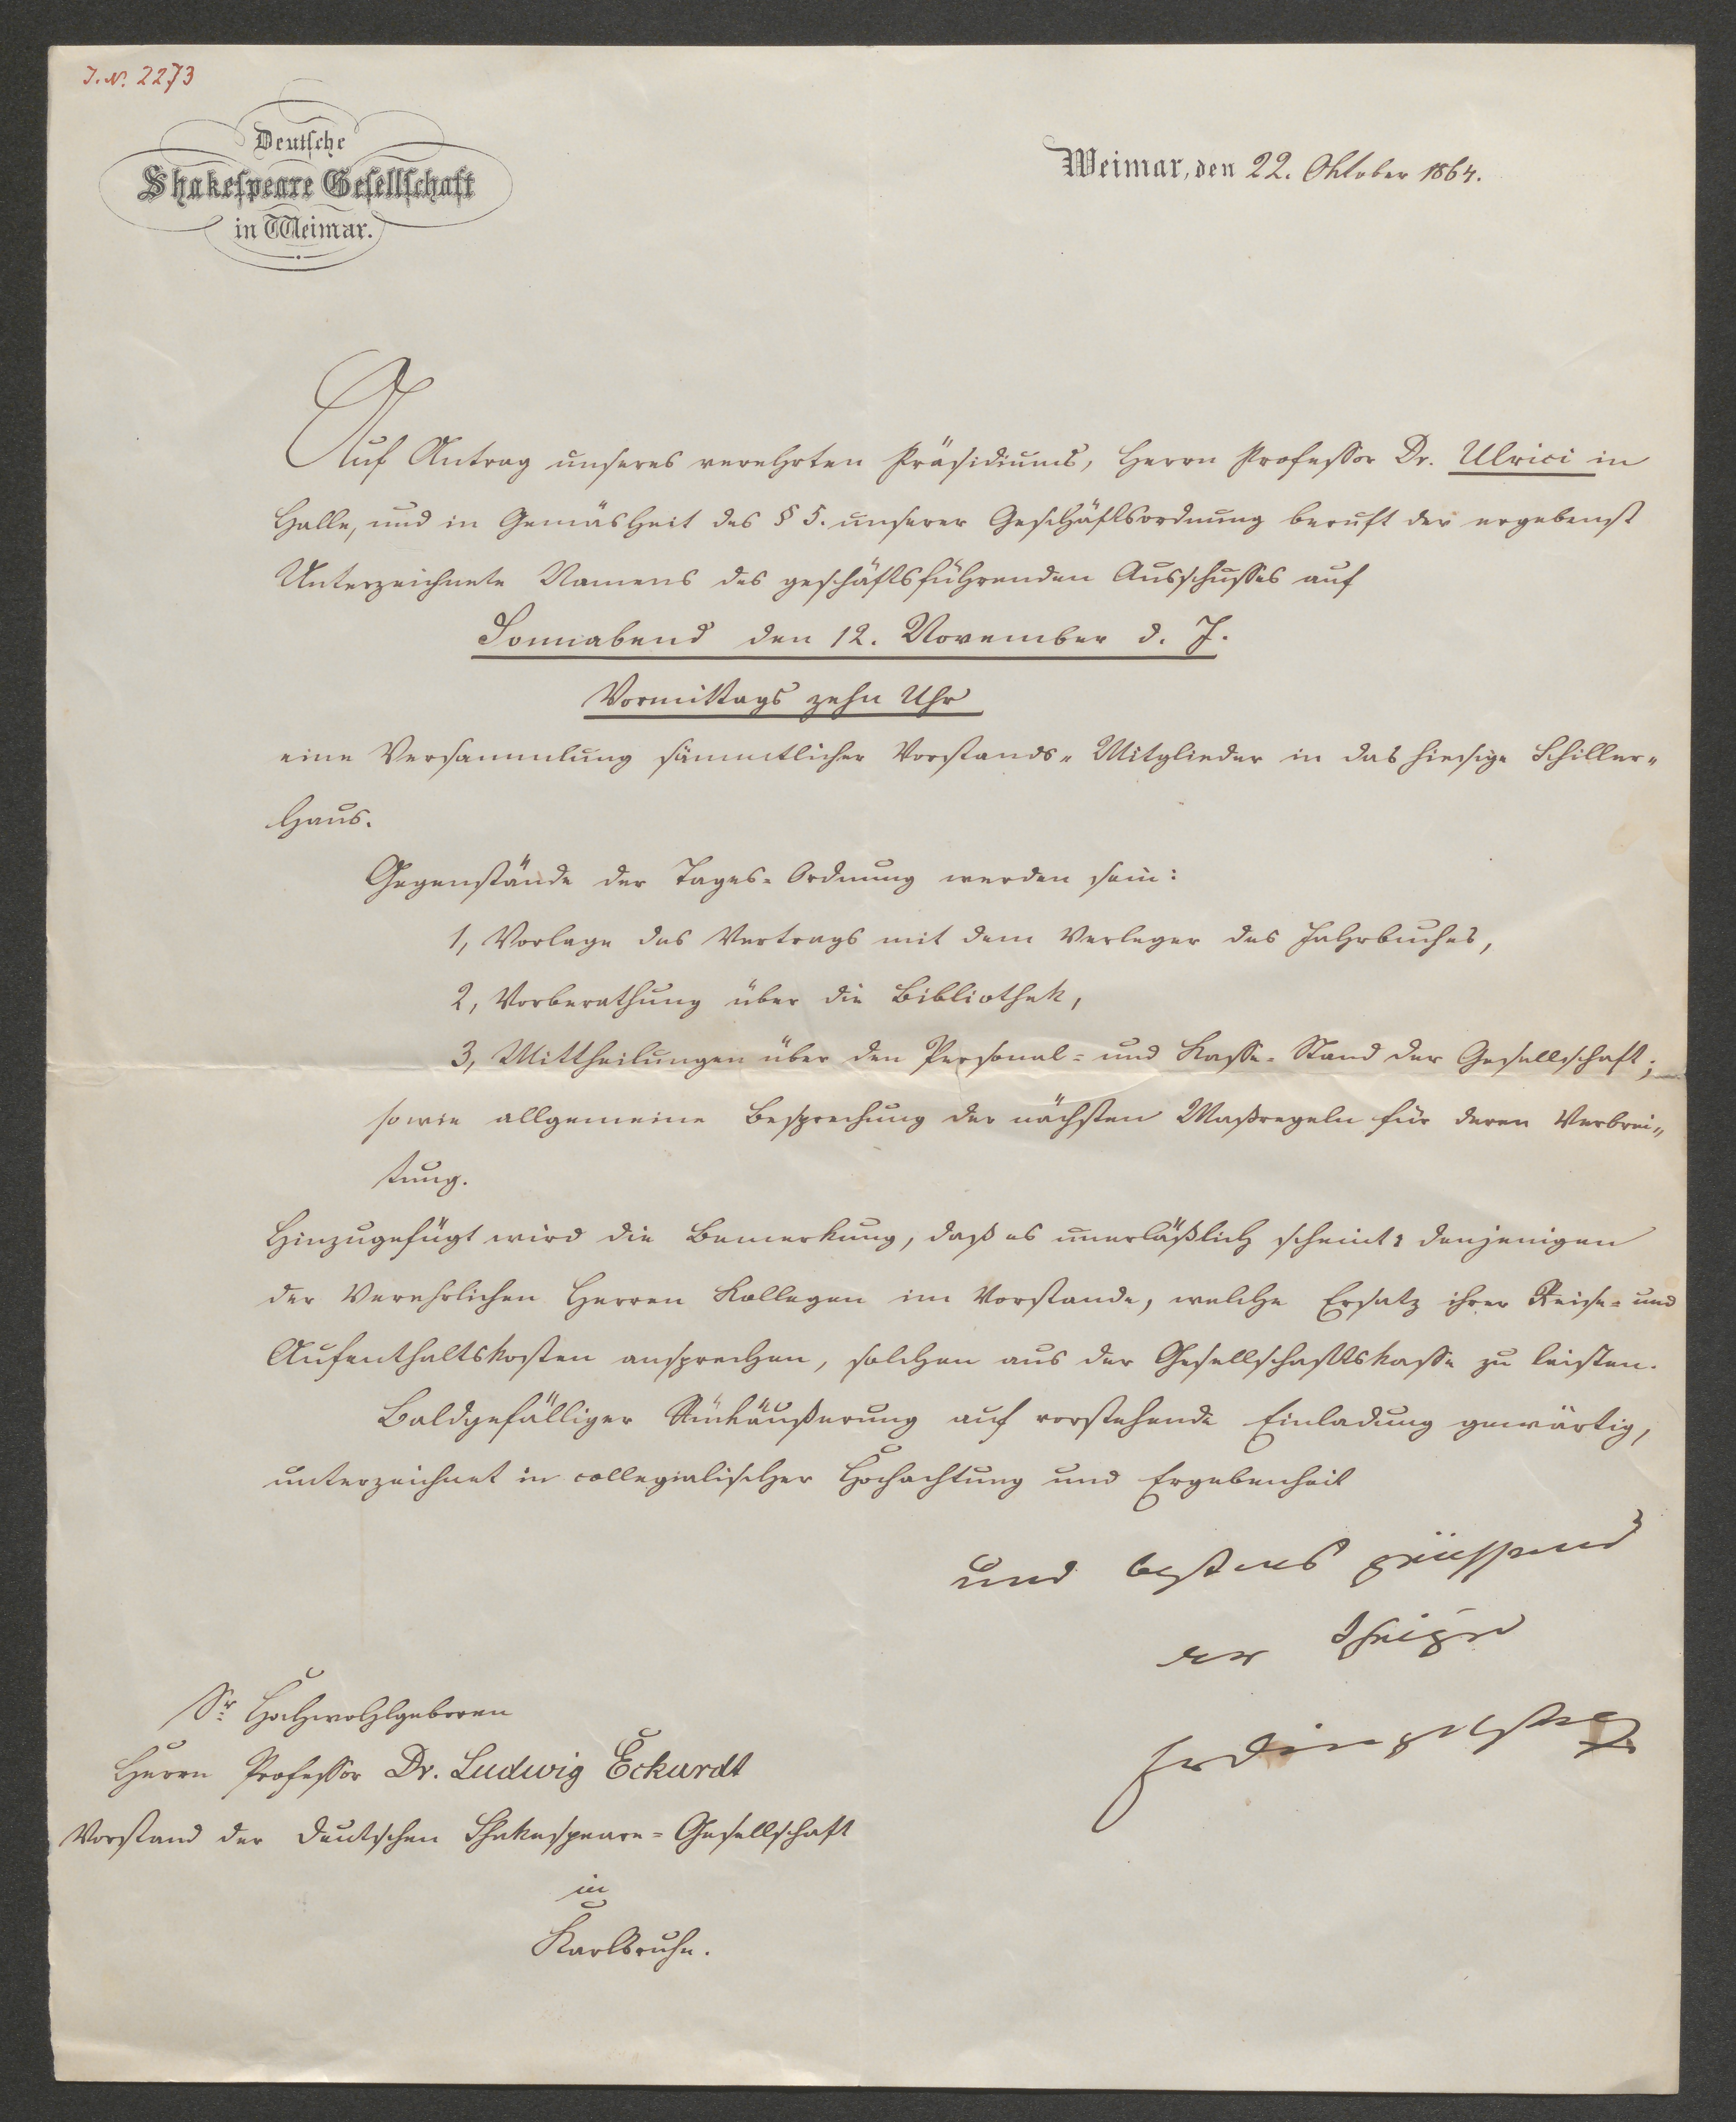 J. N. 2273
Deutsche
Shakespeare Gesellschaft
in Weimar.
Weimar, den 22. Oktober 1864.
Auf Antrag unseres verehrten Präsidiums, Herrn Professor Dr. Ulrici in
Halle, und in Gemäsheit des § 5. unserer Geschäftsordnung beruft der ergebenst
Unterzeichnete Namens des geschäftsführenden Ausschusses auf
Sonnabend den 12. November d. J.
Vormittags zehn Uhr
eine Versammlung sämmtlicher Vorstands-Mitglieder in das hiesige Schiller-
Haus.
Gegenstände der Tages-Ordnung werden sein:
1, Vorlage des Vertrags mit dem Verleger des Jahrbuches,
2, Vorberathung über die Bibliothek,
3, Mittheilungen über den Personal- und Kasse-Stand der Gesellschaft;
sowie allgemeine Besprechung der nächsten Maßregeln für deren Verbrei-
tung.
Hinzugefügt wird die Bemerkung, daß es unerläßlich scheint: denjenigen
der Verehrlichen Herren Kollegen im Vorstande, welche Ersatz ihrer Reise- und
Aufenthaltskosten ansprechen, solchen aus der Gesellschaftskasse zu leisten.
Baldgefälliger Rückäußerung auf vorstehende Einladung gewärtig,
unterzeichnet in collegialischer Hochachtung und Ergebenheit
und bestens grüssend
der Ihrige
Fr Dingelstedt
Sr. Hochwohlgeboren
Herrn Professor Dr. Ludwig Eckardt
Vorstand der deutschen Shakespeare-Gesellschaft
in
Karlsruhe.